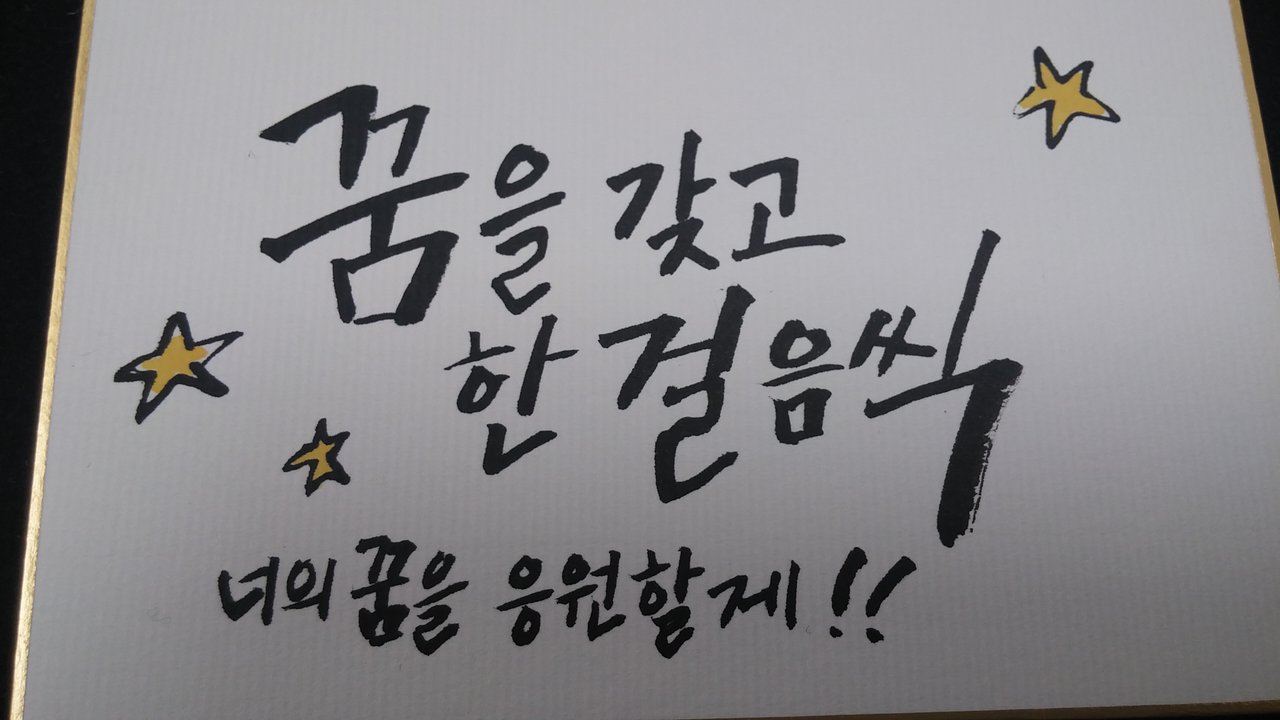 꿈을 갖고
한 걸음씩
너의 꿈을 응원할게!!